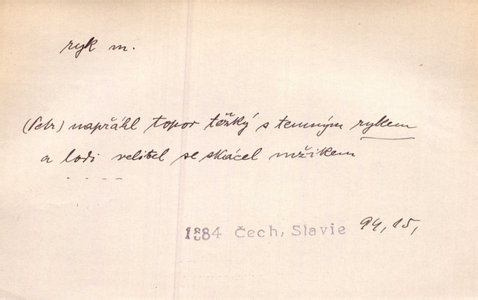 ryk m.
(Petr) napřáhl topor těžký s temným rykem
a lodi velitel se skácel mžikem
1884 Čech, Slavie 94,15,